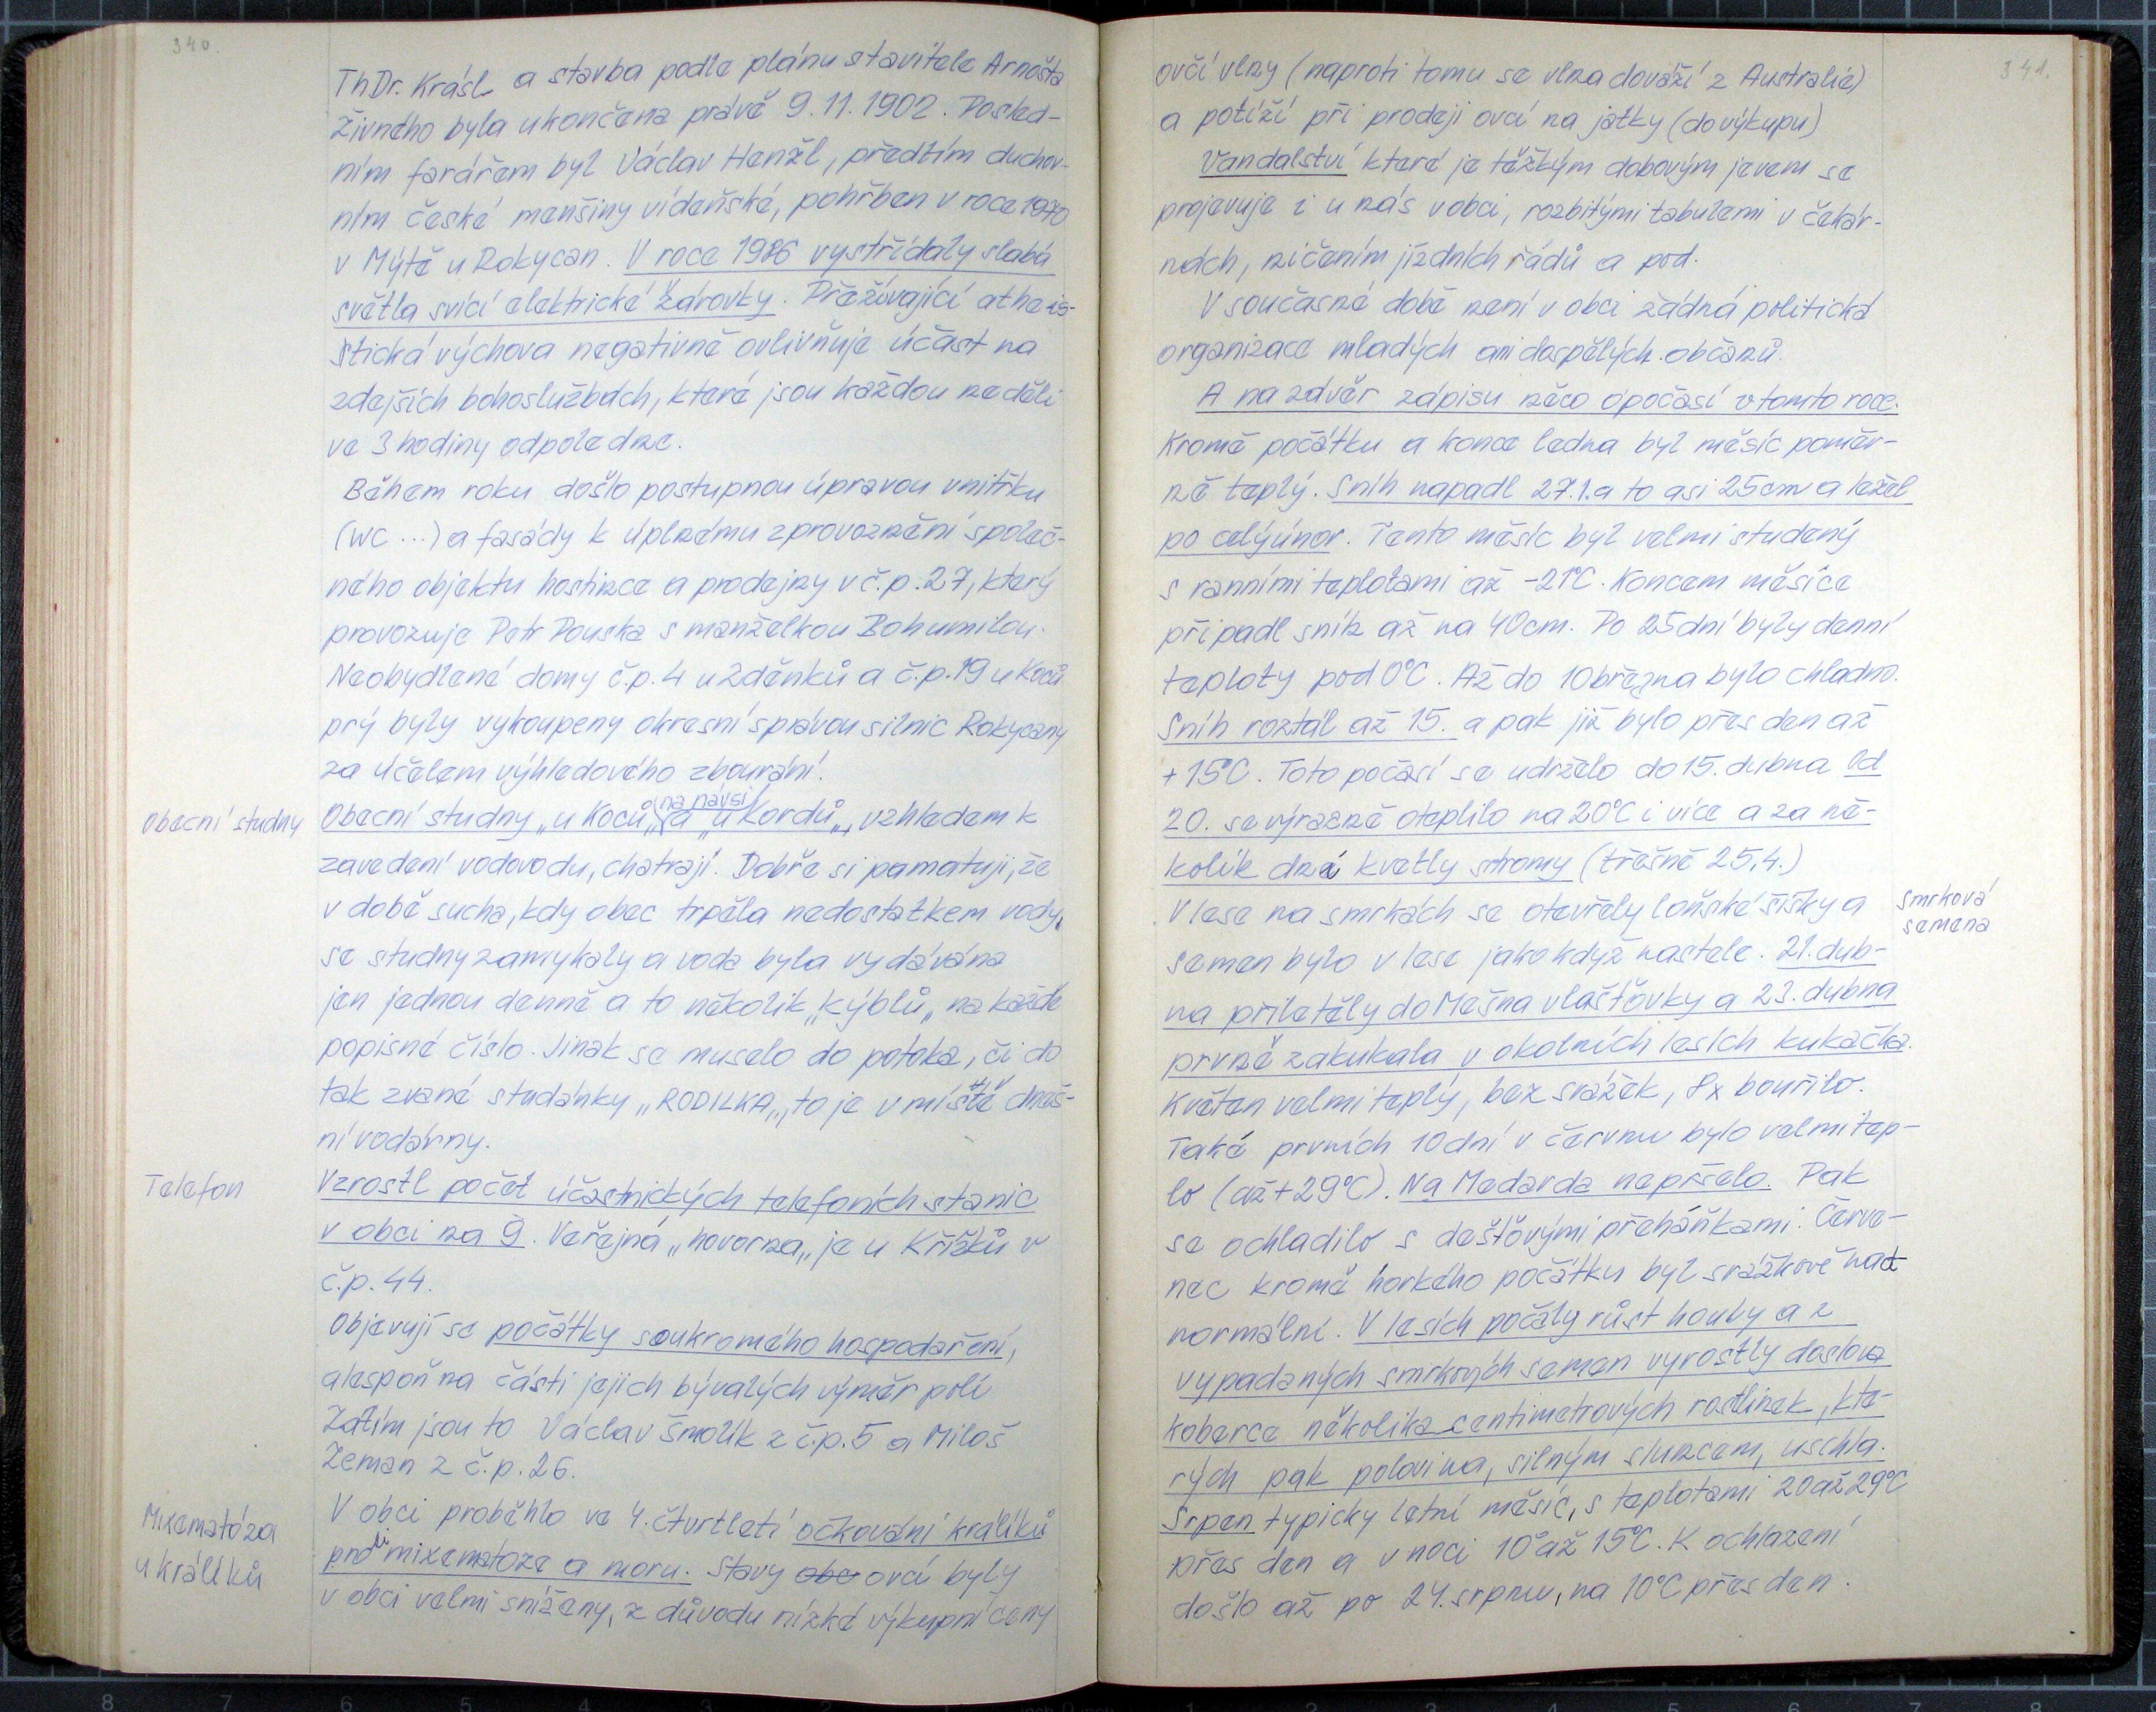 340.
ThDr. Krásl a stavba podle plánu stavitele Arnošta
Živného byla ukončena právě 9.11.1902. Posled-
ním farářem byl Václav Henžl, předtím duchov-
ním české menšiny vídeňské, pohřben v roce 1970
v Mýtě u Rokycan. V roce 1986 vystřídaly slabá
světla svící elektrické žárovky. Přežívající atheis-
stická výchova negativně ovlivňuje účast na
zdejších bohoslužbách, které jsou každou neděli
ve 3 hodiny odpoledne.
Během roku došlo postupnou úpravou vnitřku
(WC ...) a fasády k úplnému zprovoznění společ-
ného objektu hostince a prodejny v č.p. 27, který
provozuje Petr Pouska s manželkou Bohumilou.
Neobydlené domy č.p. 4 u Zděnků a č.p. 19 u Koců
prý byly vykoupeny okresní správou silnic Rokycany
za účelem výhledového zbourání.
Obecní studny
Obecní studny „u Koců„ (na návsi) a „u Kordů„, vzhledem k
zavedení vodovodu, chatrají. Dobře si pamatuji, že
v době sucha, kdy obec trpěla nedostatkem vody,
se studny zamykaly a voda byla vydávána
jen jednou denně a to několik „kýblů„ na každé
popisné číslo. Jinak se muselo do potoka, či do
tak zvané studánky „RODILKA„, to je v místě dneš-
ní vodárny.
Telefon
Vzrostl počet účastnických telefoních stanic
v obci na 9. Veřejná „hovorna„ je u Křížků v
č.p. 44.
Objevují se počátky soukromého hospodaření,
alespoň na části jejich bývalých výměr polí
Zatím jsou to Václav Šmolík z č.p. 5 a Miloš
Zeman z č.p. 26.
Mixematóza
u králíků
V obci proběhlo ve 4. čtvrtletí očkování králíků
proti mixematoze a moru. Stavy obc ovcí byly
v obci velmi sníženy, z důvodu nízké výkupní ceny
341.
ovčí vlny (naproti tomu se vlna dováží z Australie)
a potíží při prodeji ovcí na jatky (do výkupu)
Vandalství které je těžkým dobovým jevem se
projevuje i u nás v obci, rozbitými tabulemi v čekár-
nách, ničením jízdních řádů a pod.
V současné době není v obci žádná politická
organizace mladých ani dospělých občanů.
A na závěr zápisu něco o počasí v tomto roce.
Kromě počátku a konce ledna byl měsíc poměr-
ně teplý. Sníh napadl 27.1. a to asi 25cm a ležel
po celý únor. Tento měsíc byl velmi studený
s ranními teplotami až -21°C. Koncem měsíce
připadl sníh až na 40cm. Po 25 dní byly denní
teploty pod 0°C. Až do 10 března bylo chladno.
Sníh roztál až 15. a pak již bylo přes den až
+15°C. Toto počasí se udrželo do 15. dubna Od
20. se výrazně oteplilo na 20°C i více a za ně-
kolik dní kvetly stromy (třešně 25.4.)
V lese na smrkách se otevřely loňské šišky a
smrková
semena
semen bylo v lese jako když nastele. 21. dub-
na přiletěly do Mešna vlaštovky a 23. dubna
prvně zakukala v okolních lesích kukačka.
Květen velmi teplý, bez srážek, 8x bouřilo.
Také prvních 10 dní v červnu bylo velmi tep-
lo (až +29°C). Na Medarda nepršelo. Pak
se ochladilo s dešťovými přeháňkami. Červe-
nec kromě horkého počátku byl srážkově nad
normální. V lesích počaly růst houby a z
vypadaných smrkových semen vyrostly doslova
koberce několika centimetrových rostlinek, kte-
rých pak polovina, silným sluncem, uschla.
Srpen typicky letní měsíc, s teplotami 20 až 29°C
přes den a v noci 10° až 15°C. K ochlazení
došlo až po 24. srpnu, na 10°C přes den.